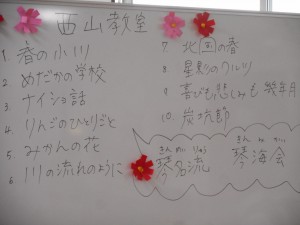 西山教室
1 春の小川
2 めだかの学校
3 ナイショ話
4 りんごのひとりごと
5 みかんの花
6 川の流れのように
7 北国の春
8 星影のワルツ
9 喜びも悲しみも幾年月
10. 炭坑節
きん めい りゅう
琴名流
きん かい
琴海会